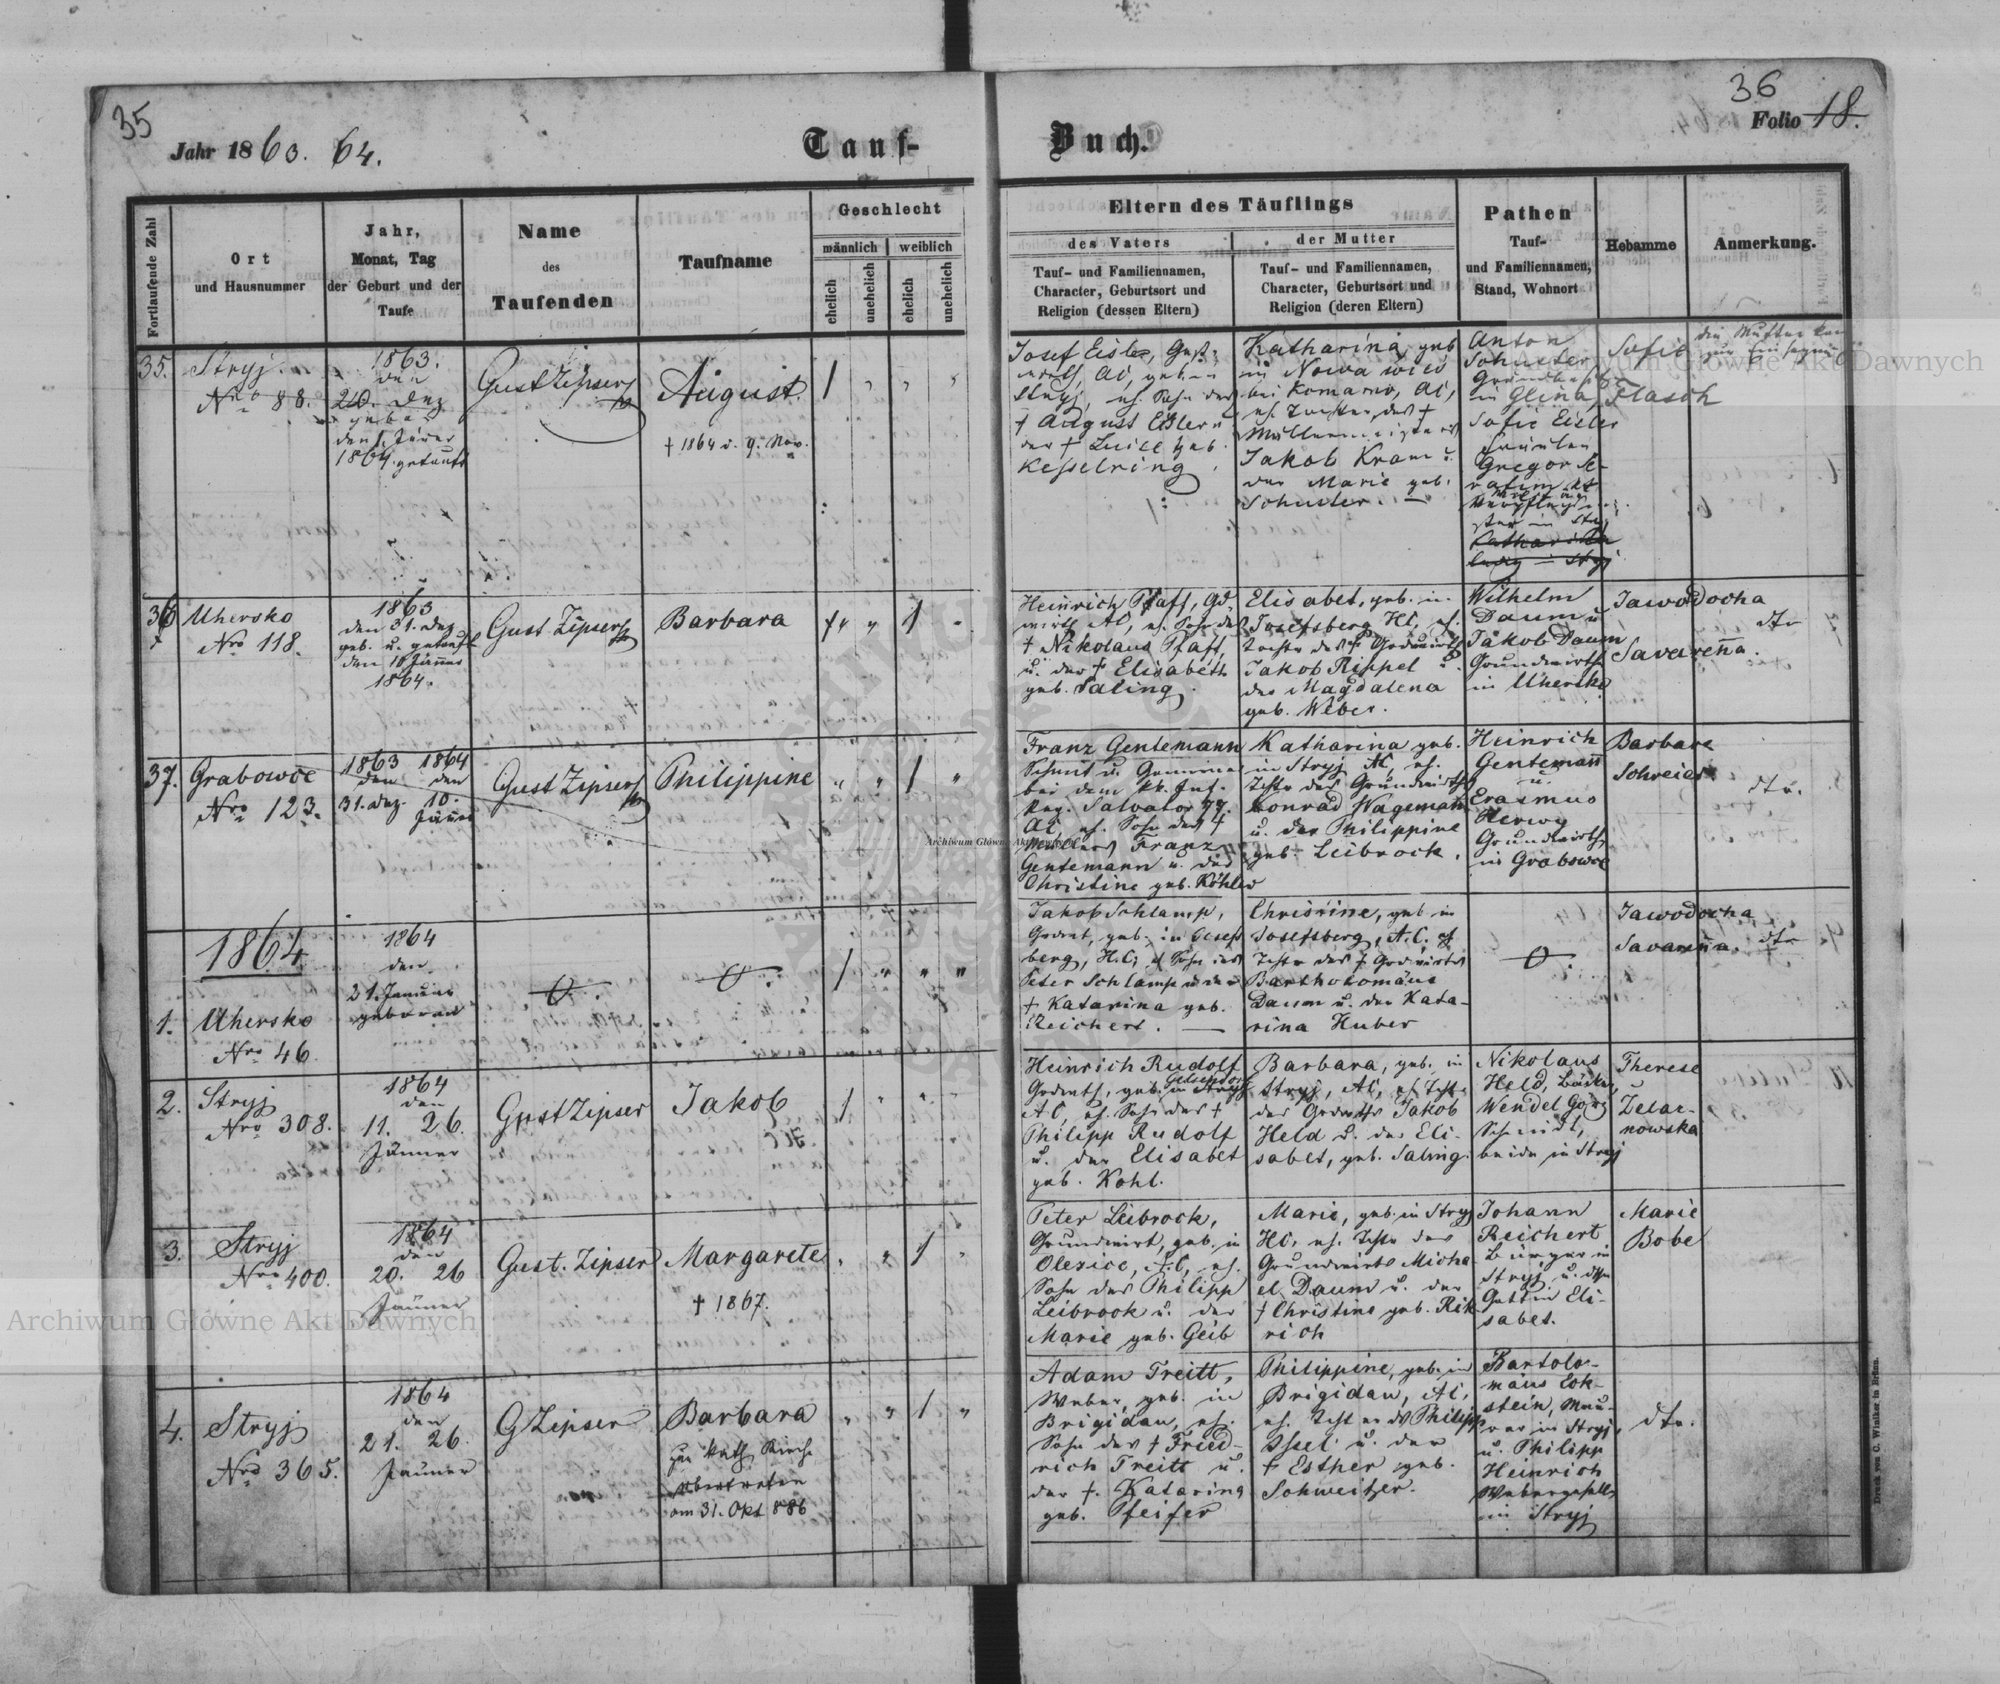 35
36
Jahr 1863. 64.
Tauf-
Buch.
Folio 18.
Fortlaufende Zahl
Ort
und Hausnummer
Jahr,
Monat, Tag
der Geburt und der
Taufe
Name
des
Taufenden
Taufname
Geschlecht
männlich
weiblich
ehelich
unehelich
ehelich
unehelich
Eltern des Täuflings
des Vaters
Tauf- und Familiennamen,
Character, Geburtsort und
Religion (dessen Eltern)
der Mutter
Tauf- und Familiennamen,
Character, Geburtsort und
Religion (deren Eltern)
Pathen
Tauf-
und Familiennamen,
Stand, Wohnort
Hebamme
Anmerkung.
35.
Stryj
Nro 88.
1863.
den
20. Dez
gebo
den 1. Jäner
1864. getauft
Gust Zipser
August.
† 1864 d. 9. Nov.
Josef Eisler,
AC, geb. in
Stryj, eh. Sohn des
† August Eisler u
der † Luise geb.
Kesselring
Katharina, geb
in Nowa wies
bei Komarno, AC,
eh. Tochter des †
Müllermeisters
Jakob Kram u.
der Marie geb.
Schuster. —
Anton
Schuster
Grundbesitzer
in Glina,
Sofie Eisler
Gregor Se-
rafim kk
in Stryj
Sofie
Flasch
die Mutter
36
Uhersko
Nro 118.
1863
den 31. Dez
geb. u. getauft
den 10 Jänner
1864.
Gust. Zipser
Barbara
Heinrich Pfaff, Gd.
wirth AC, eh. Sohn des
† Nikolaus Pfaff,
u. der † Elisabeth
geb. Saling.
Elisabet, geb. in
Josefsberg HC, eh.
Tochter des † Grdwirth
Jakob Rippel u.
der Magdalena
geb. Weber.
Wilhelm
Daum u
Jakob Daum
Grundwirthe
in Uhersko
Jawodocha
Savarenna.
dto
37.
Grabowce
Nro 123.
1863 1864
den den
31. Dez. 10.
Jäner
Gust Zipser
Philippine
Franz Gentemann
Schmit u. Gemeiner
bei dem kk. Inf.
Reg. Salvator 77.
AC eh. Sohn des †
Müllers Franz
Gentemann u. der
Christine geb. Köhler
Katharina geb.
in Stryj AC, eh.
Tchtr des Grundwirths
Konrad Wagemann
u. der Philippine
geb. Leibrock.
Heinrich
Gentemann
u.
Erasmus
Herwy
Grundwirthe
in Grabowce
Barbara
Schreier
dto.
1864
1.
Uhersko
Nro 46.
1864
den
21. Januar
geboren
Jakob Schlamp,
Grdwrt, geb. in Josef
berg, H.C; eh Sohn des
Peter Schlamp u. der
† Katarina geb.
Reichert. —
Christine, geb in
Josefsberg, A.C. eh
Tchtr des † Grdwirths
Bartholomäus
Daum u. der Kata-
rina Huber
Jawodocha
Savarenna. dto
2.
Stryj
Nro 308.
1864
den
11. 26.
Jänner
Gust Zipser
Jakob
HC
Heinrich Rudolf
Grdwrth, geb. in Gelsendorf
AC, eh. Sohn des †
Philipp Rudolf
u. der Elisabet
geb. Kohl.
Barbara, geb. in
Stryj, AC, eh. Tcht.
des Grdwths Jakob
Held u. der Eli-
sabet, geb. Saling.
Nikolaus
Held, Bäcker,
Wendel Görz
Schmidt,
beide in Stryj
Therese
Zelar-
nowska
3.
Stryj
Nro 400.
1864
den
20. 26
Jänner
Gust. Zipser
Margarete
† 1867.
Peter Leibrock,
Grundwirt, geb. in
Olexice, AC, eh.
Sohn des Philipp
Leibrock u. der
Marie geb. Geib
Marie, geb. in Stryj
HC, eh. Tchtr des
Grundwirts Micha
el Daum u. der
† Christine geb. Rik
rich
Johann
Reichert
Bürger in
Stryj u. dssn
Gattin Eli-
sabet.
Marie
Bobe
4.
Stryj
Nro 365.
1864
den
21. 26.
Jänner
G Zipser
Barbara
zur kath. Kirche
übertreten
am 31. Okt 886
Adam Treitt,
Weber, geb. in
Brigidau, eh.
Sohn des † Fried-
rich Treitt u.
der †. Katarina
geb. Pfeifer
Philippine, geb. in
Brigidau, AC,
eh. Tchter ds Philipp
Issel u. der
† Esther geb.
Schweitzer.
Bartolo-
mäus Eck-
stein, Mau-
rer in Stryj,
u. Philipp
Heinrich
Webergeselle
in Stryj
dto.
Druck von C. Winiker in Brünn.
Archiwum Główne Akt Dawnych
Archiwum Główne Akt Dawnych
Archiwum Główne Akt Dawnych